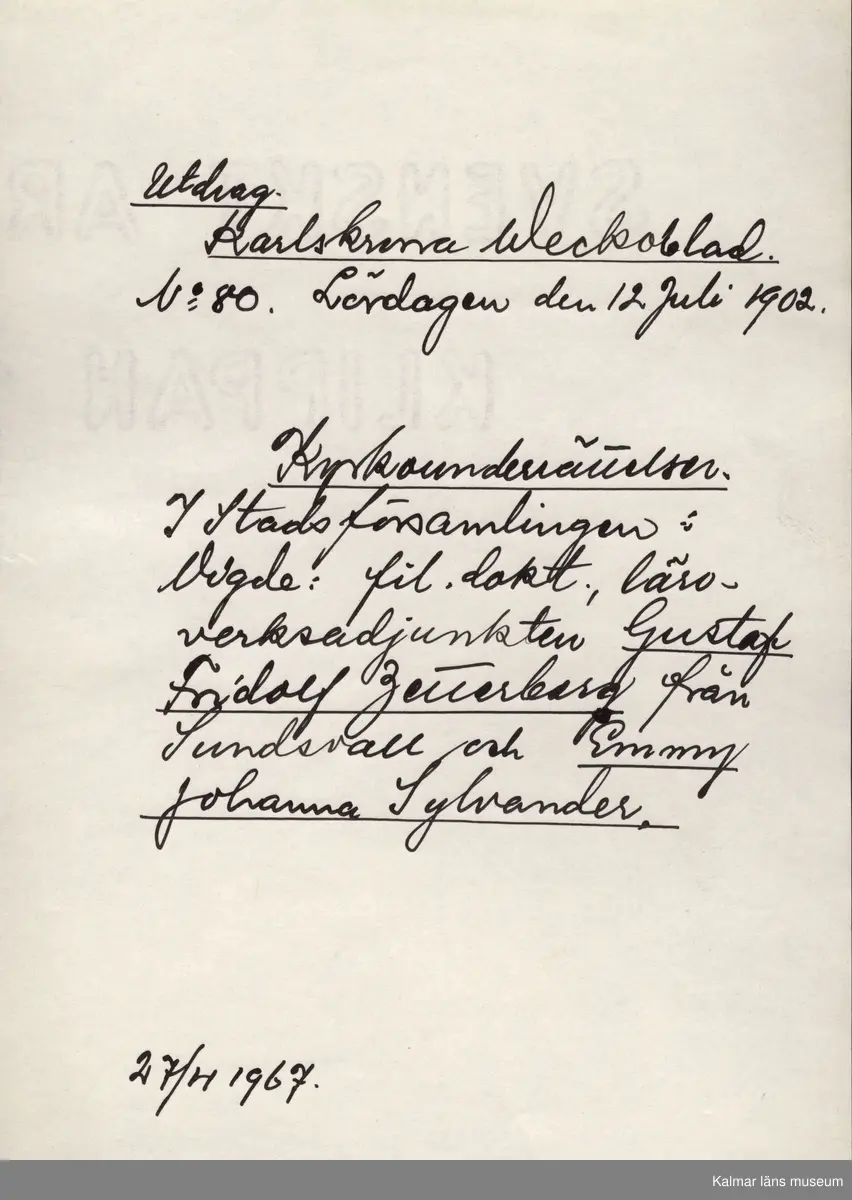 Utdrag.
Karlskrona Weckoblad.
No: 80. Lördagen den 12 Juli 1902.
Kyrkounderrättelser.
I Stadsförsamlingen:
Vigde: fil. dokt., läro-
verksadjunkten Gustaf
Fridolf Zetterberg från
Sundsvall och Emmy
Johanna Sylvander.
27/4 1967.
Kalmar läns museum